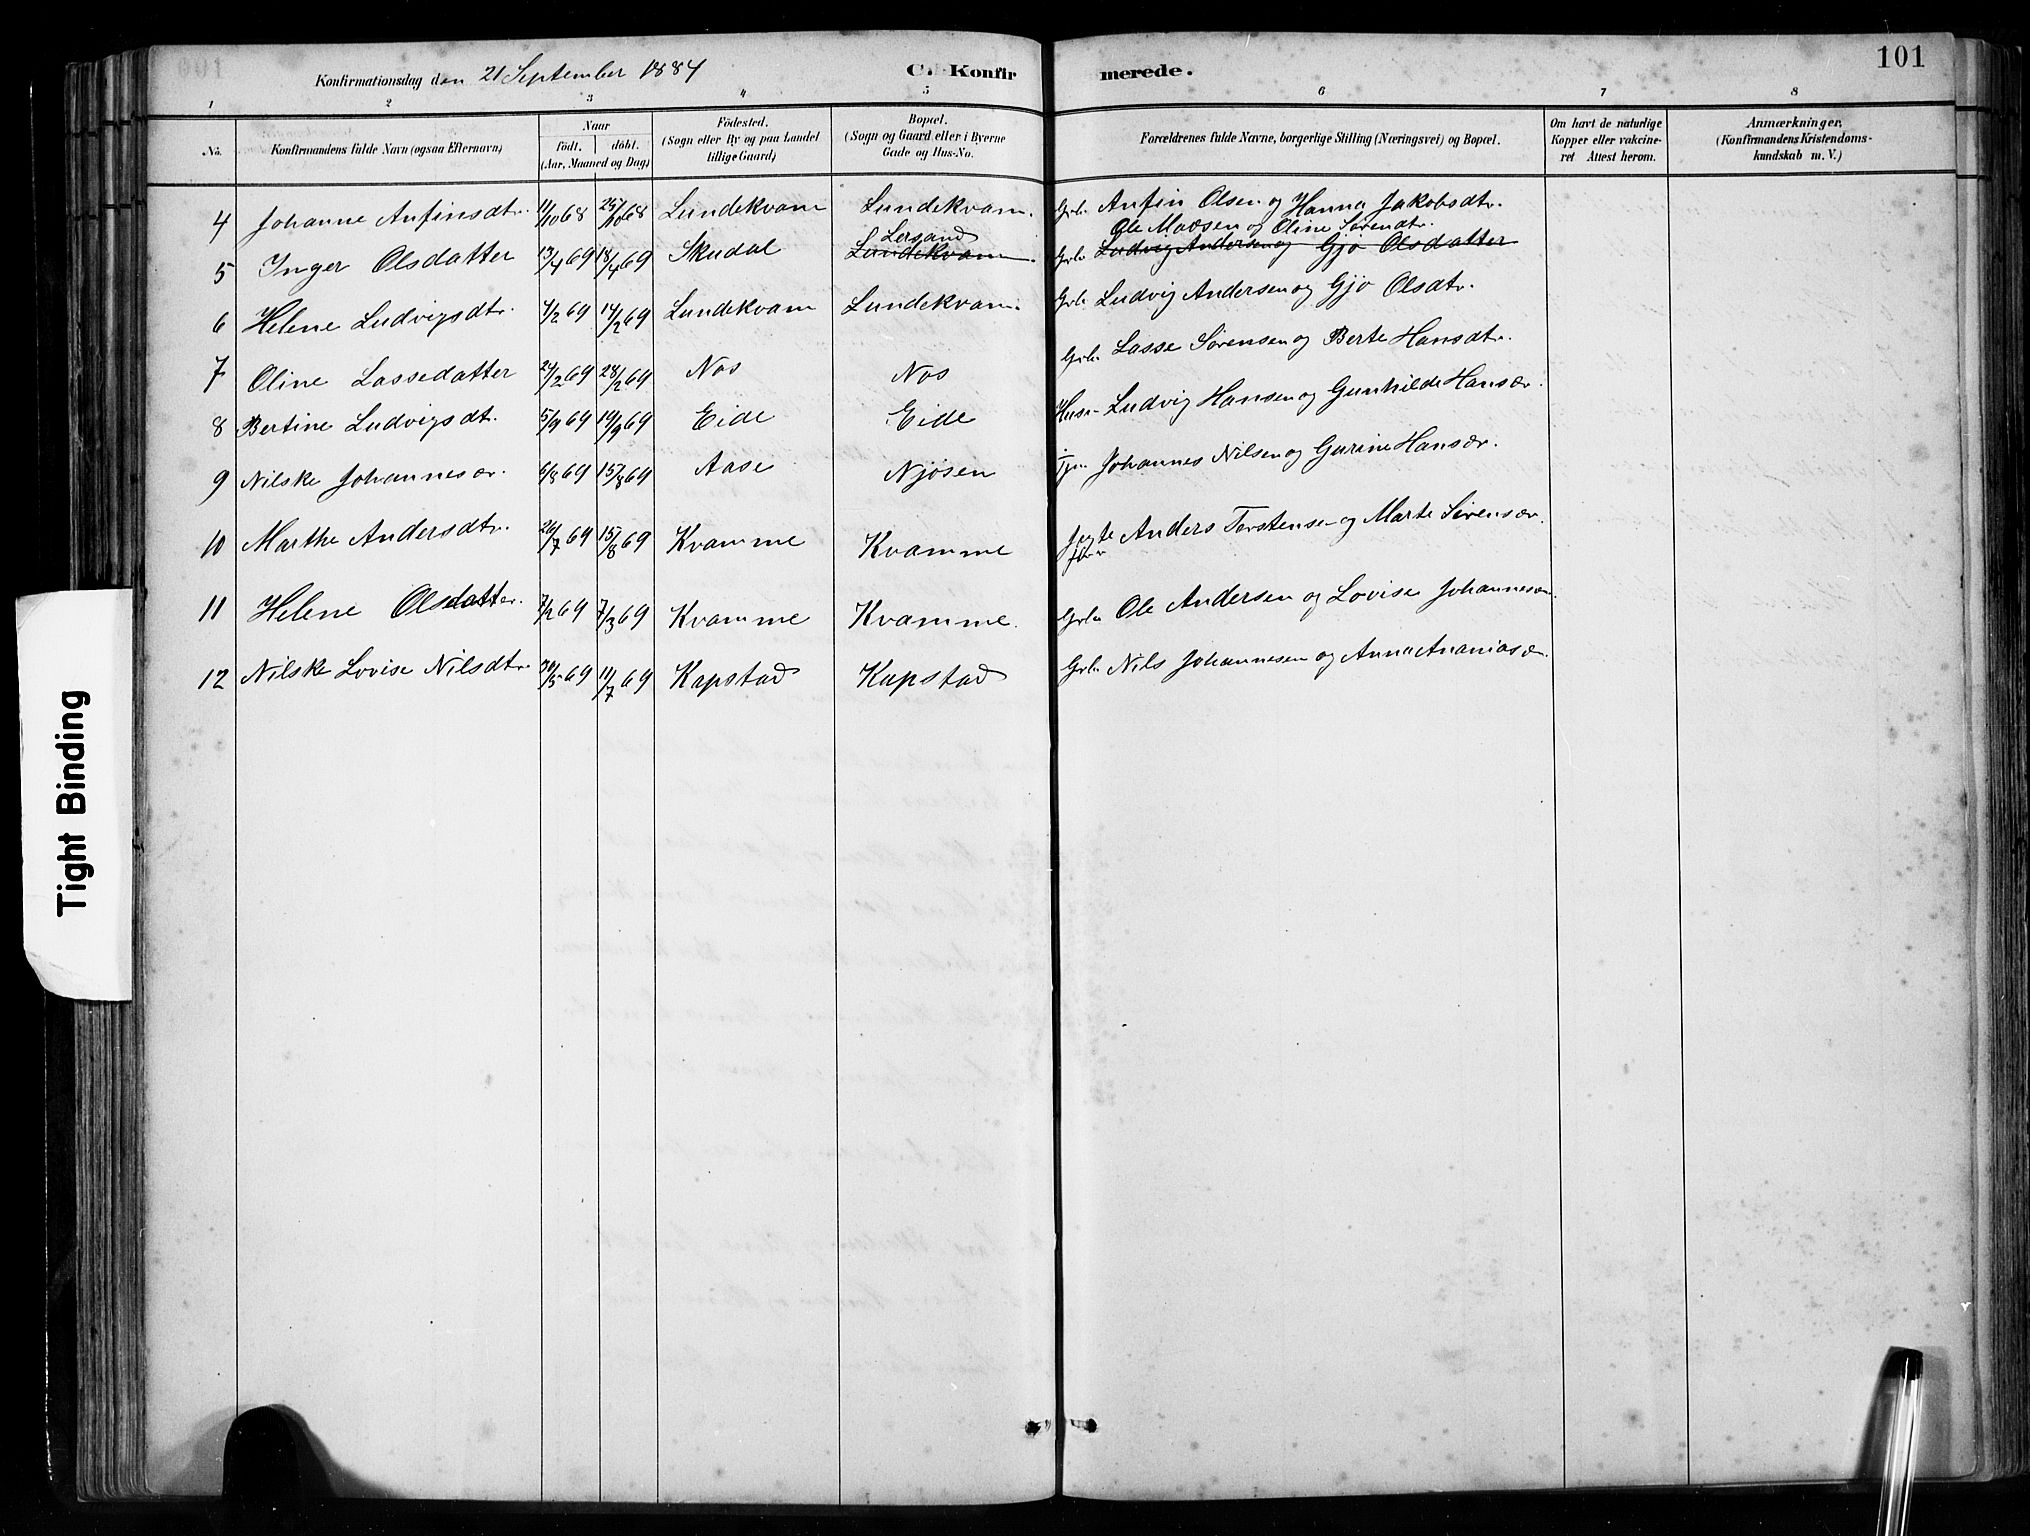 101
Konfirmationsdag den 21 September 1884 C. Konfirmerede.
1 2 3 4 5 6 7 8
No. Konfirmandens fulde Navn (ogsaa Efternavn) Naar födt. döbt. (Aar, Maaned og Dag) Födested. (Sogn eller By og paa Landet tillige Gaard) Bopæl. (Sogn og Gaard eller i Byerne Gade og Hus-No. Forældrenes fulde Navne, borgerlige Stilling (Næringsvei) og Bopæl. Om havt de naturlige Kopper eller vakcineret Attest herom. Anmærkninger, (Konfirmandens Kristendomskundskab m. V.)
4 Johanne Anfinsdtr. 11/10 68 25/10 68 Lundekvam Lundekvam. Grbr. Anfin Olsen og Hanna Jakobsdtr.
Lersand Ole Madsen og Oline Sörendtr.
5 Inger Olsdatter 13/4 69 18/4 69 Skudal Lundekvam. Grbr Ludvig Andersen og Gjö Olsdatter
6 Helene Ludvigsdtr. 4/2 69 14/2 69 Lundekvam Lundekvam. Grbr. Ludvig Andersen og Gjö Olsdtr.
7 Oline Lassedatter 24/2 69 28/2 69 Nos Nos Grbr. Lasse Sörensen og Berte Hansdtr.
8 Bertine Ludvigsdt. 5/9 69 19/9 69 Eide Eide Husm. Ludvig Hansen og Gunhilde Hansdr.
9 Nilske Johannesdr. 6/8 69 15/8 69 Aase Njösen Johannes Nilsen og Gurine Hansdr.
10 Marthe Andersdtr. 26/7 69 15/8 69 Kvamme Kvamme Anders Torstensen og Marte Sörensdr.
11 Helene Olsdatter. 7/2 69 7/3 69 Kvamme Kvamme. Grbr Ole Andersen og Lovise Johannesdr.
12 Nilske Lovise Nilsdtr. 30/5 69 11/7 69 Kapstad Kapstad Grbr. Nils Johannesen og Anna Ananiasdr.
Tight Binding